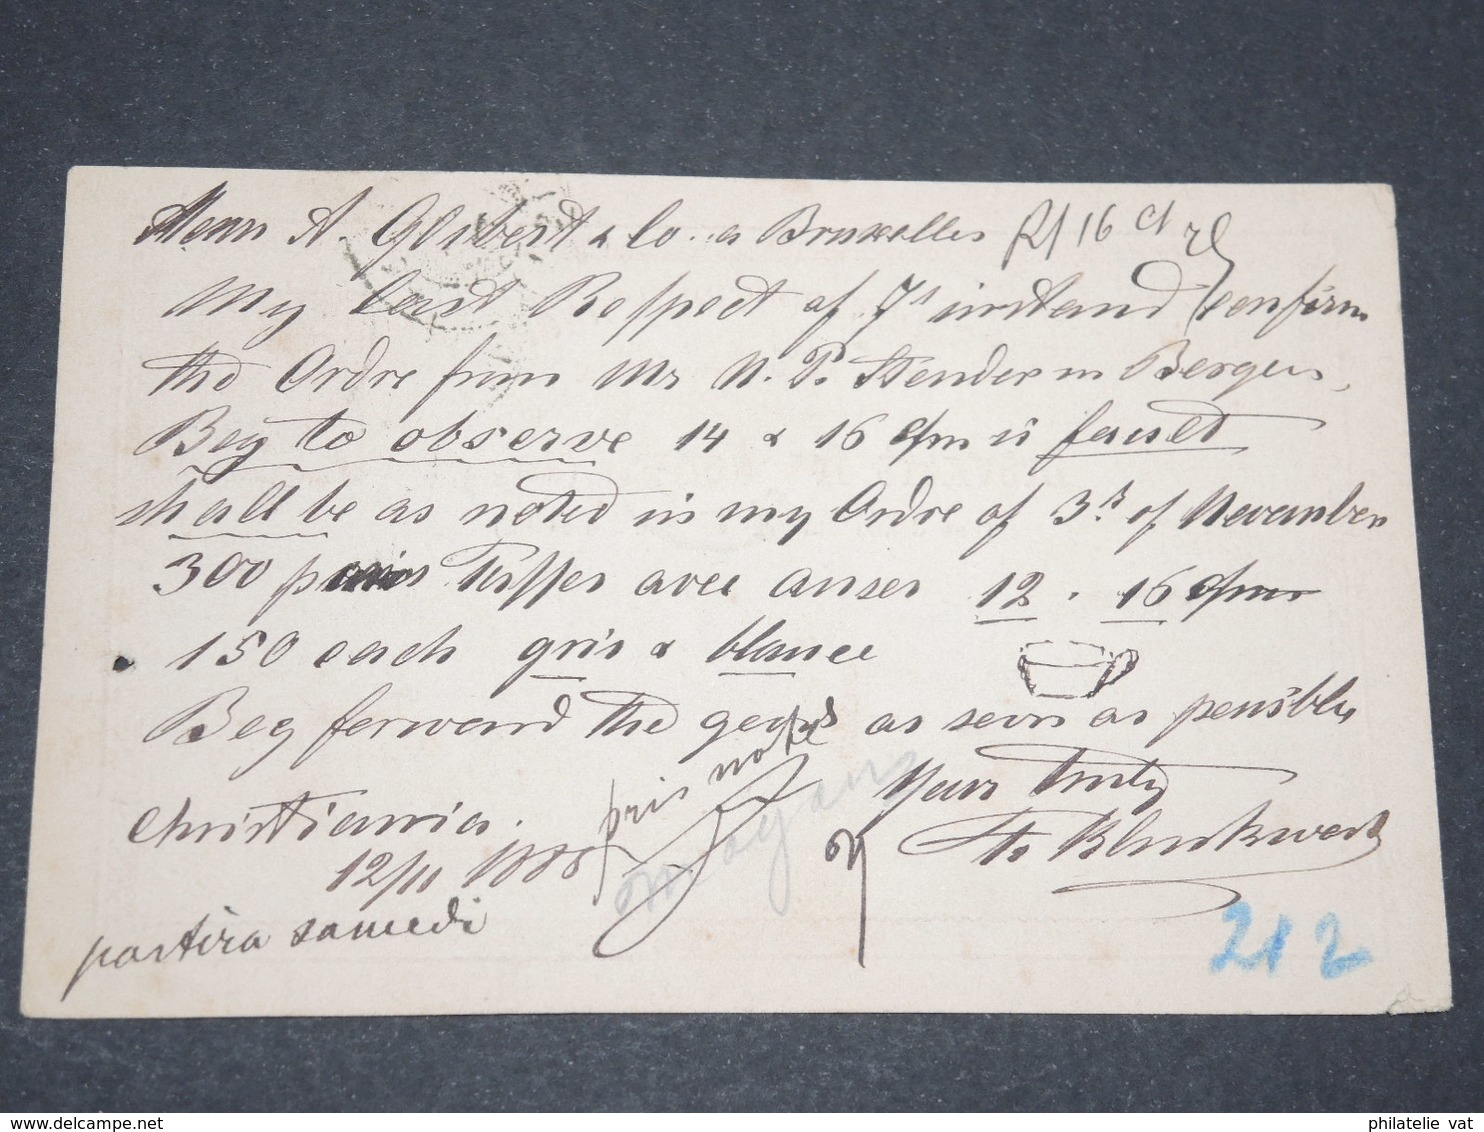 Messrs A. Gilbert & Co. a Bruxelles R/ 16 ct
My last Respect of 7t instand confirm
the Ordre from Mr N. P. Stender in Bergen,
Beg to observe 14 & 16 c/m is fault
shall be as noted in my Ordre of 3d of November
300 Tasses avec anses 12 . 16 c/m
150 each gris & blance
Beg forward the goods as soon as possible
pris note
Yours Truly
Christiania.
12/11 1885
partira samedi
212
philatelie vat